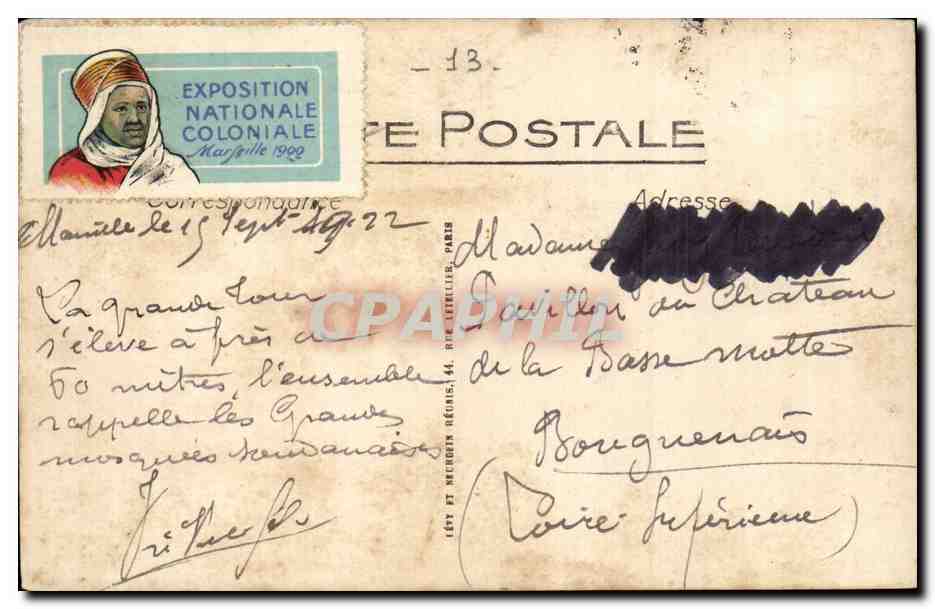 EXPOSITION
NATIONALE
COLONIALE
Marseille 1922
- 13 -
TE POSTALE
Correspondance
Adresse
Marseille le 15 Sept 22
La grande tour
s'élève à près de
60 mètres, l'ensemble
rappelle les Grandes
mosquées soudanaises
Madame
Pavillon du Chateau
de la Basse Motte
Bouguenais
(Loire-Inférieure)
LÉVY ET NEURDEIN RÉUNIS, 44, RUE LETELLIER, PARIS
CPAPHIL